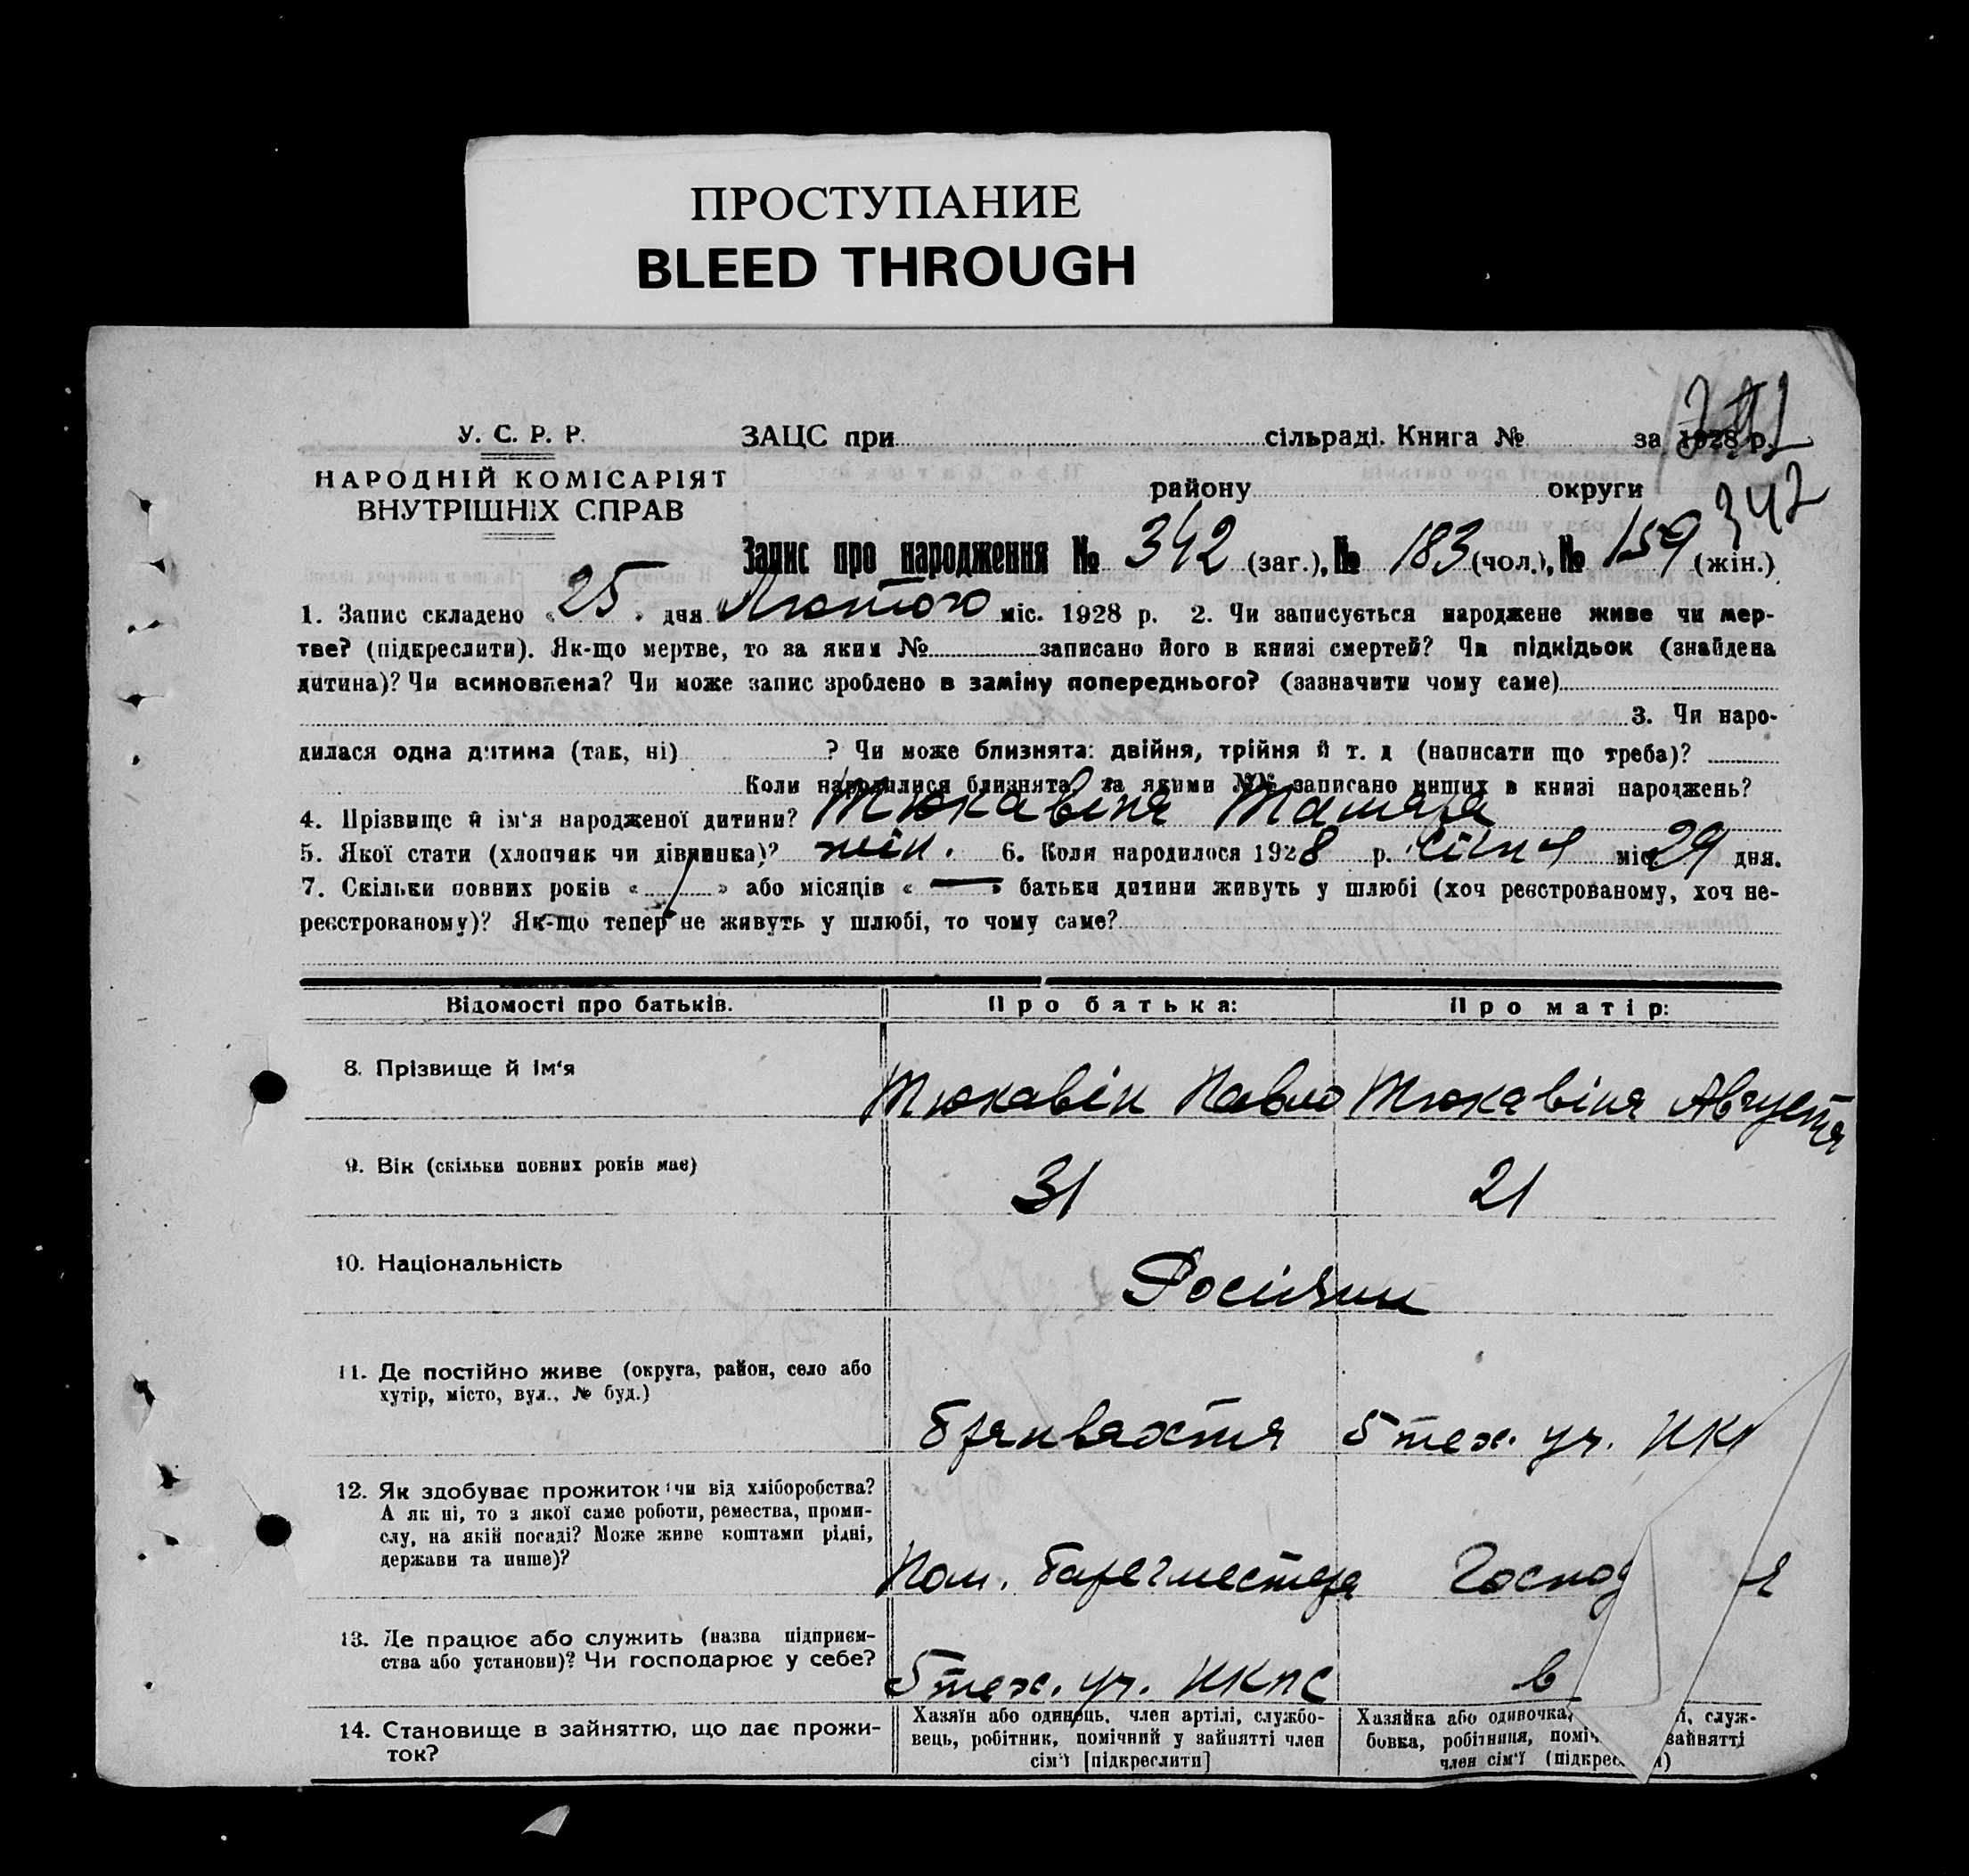 ПРОСТУПАНИЕ
BLEED THROUGH
У. С. Р. Р.
НАРОДНІЙ КОМІСАРІЯТ
ВНУТРІШНІХ СПРАВ
ЗАЦС при сільраді. Книга № за 1928 р.
342
району округи
Запис про народження № 342 (заг.), № 183 (чол.), № 159 (жін.)
1. Запис складено «25» дня Лютого міс. 1928 р. 2. Чи записується народжене живе чи мер-
тве? (підкреслити). Як-що мертве, то за яким № записано його в книзі смертей? Чи підкідьок (знайдена
дитина)? Чи всиновлена? Чи може запис зроблено в заміну попереднього? (зазначити чому саме)
3. Чи наро-
дилася одна дитина (так, ні) ? Чи може близнята: двійня, трійня й т. д (написати що треба)?
Коли народилися близнята, за якими №№ записано инших в книзі народжень?
4. Прізвище й ім'я народженої дитини? Тюкавіна Тамара
5. Якої стати (хлопчик чи дівчинка)? жін. 6. Коли народилося 1928 р. січня міс. 29 дня.
7. Скільки повних років « 1 » або місяців « — » батьки дитини живуть у шлюбі (хоч реєстрованому, хоч не-
реєстрованому)? Як-що тепер не живуть у шлюбі, то чому саме?
Відомості про батьків. Про батька: Про матір:
8. Прізвище й ім'я Тюкавін Павло Тюкавіна Августа
9. Вік (скільки повних років має) 31 21
10. Національність Росіяни
11. Де постійно живе (округа, район, село або
хутір, місто, вул., № буд.)
5 тех. уч.
12. Як здобуває прожиток чи від хліборобства?
А як ні, то з якої саме роботи, ремества, проми-
слу, на якій посаді? Може живе коштами рідні,
держави та инше)?
Пом.
13. Де працює або служить (назва підприєм-
ства або установи)? Чи господарює у себе?
5 тех. уч. НКПС в
14. Становище в зайняттю, що дає прожи-
ток?
Хазяїн або одинець, член артілі, службо-
вець, робітник, помічний у зайнятті член
сім'ї [підкреслити]
Хазяйка або одиночка, служ-
бовка, робітниця, зайнятті
член сім'ї